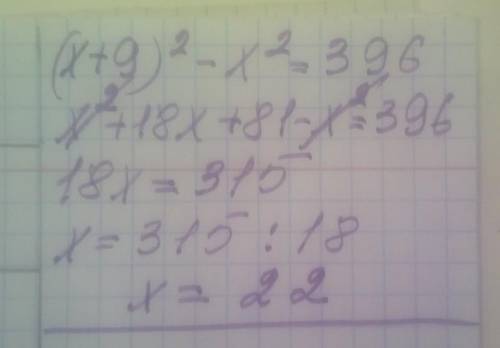 (x+9)² - x² = 396
x² + 18x + 81 - x² = 396
18x = 315
x = 315 : 18
x = 22